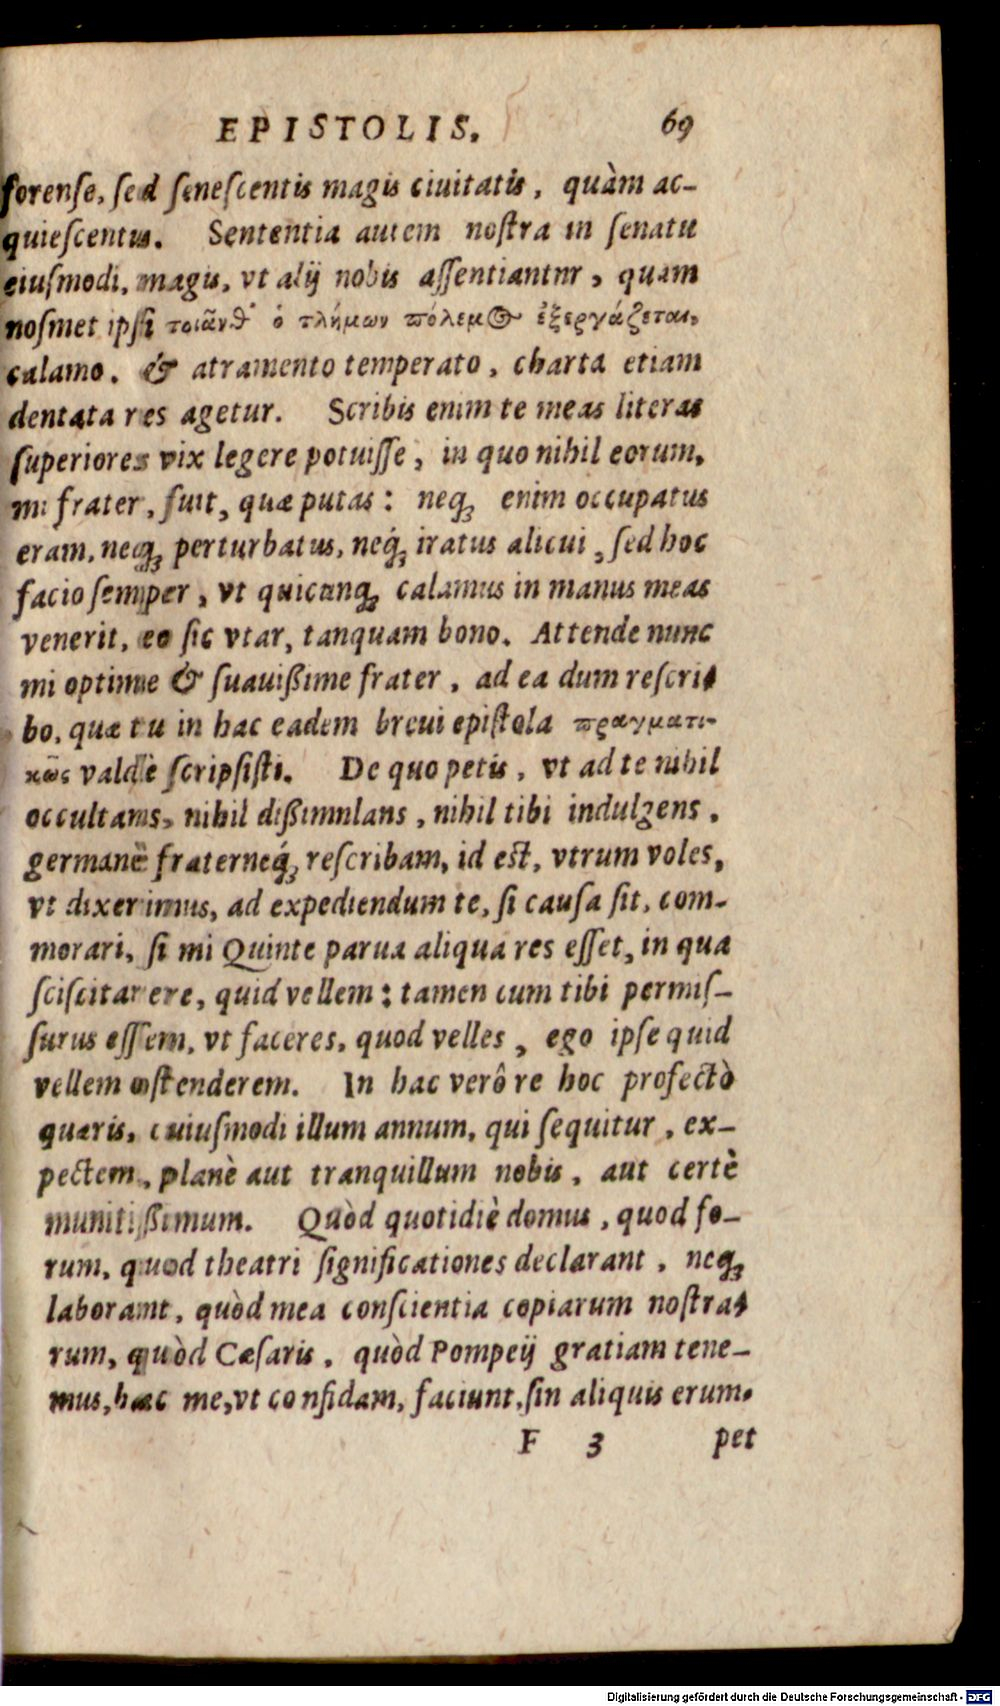 EPISTOLIS. 69
forense, sed senescentis magis ciuitatis, quàm ac-
quiescentis. Sententia autem nostra in senatu
eiusmodi, magis, vt alij nobis assentiantnr, quam
nosmet ipsi τοιαῦθ' ὁ τλήμων πόλεμος ἐξεργάζεται,
calamo. & atramento temperato, charta etiam
dentata res agetur. Scribis enim te meas literas
superiores vix legere potuisse, in quo nihil eorum,
mi frater, fuit, quæ putas: neq; enim occupatus
eram, neq; perturbatus, neq́; iratus alicui, sed hoc
facio semper, vt quicunq; calamus in manus meas
venerit, eo sic vtar, tanquam bono. Attende nunc
mi optime & suauißime frater, ad ea dum rescri-
bo, quæ tu in hac eadem breui epistola πραγματι-
κῶς valdè scripsisti. De quo petis, vt ad te nihil
occultans, nihil dißimnlans, nihil tibi indulgens,
germanè fraterneq́; rescribam, id est, vtrum voles,
vt dixerimus, ad expediendum te, si causa sit, com-
morari, si mi Quinte parua aliqua res esset, in qua
sciscitarere, quid vellem: tamen cum tibi permis-
surus essem, vt faceres, quod velles, ego ipse quid
vellem ostenderem. In hac verô re hoc profectò
quæris, cuiusmodi illum annum, qui sequitur, ex-
pectem, planè aut tranquillum nobis, aut certè
munitißimum. Quòd quotidiè domus, quod fo-
rum, quod theatri significationes declarant, neq;
laborant, quòd mea conscientia copiarum nostra-
rum, quòd Cæsaris, quòd Pompeij gratiam tene-
mus, hæc me, vt confidam, faciunt, sin aliquis erum-
F 3 pet
Digitalisierung gefördert durch die Deutsche Forschungsgemeinschaft - DFG